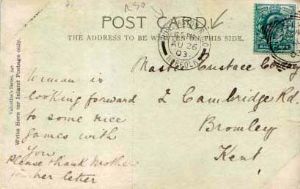 POST CARD.
THE ADDRESS TO BE WRITTEN ON THIS SIDE.
AU 26
03
Master Eustace
2 Cambridge Rd
Bromley
Kent.
looking forward
to some nice
games with
You
Please thank Mother
for her letter
Write Here for Inland Postage only.